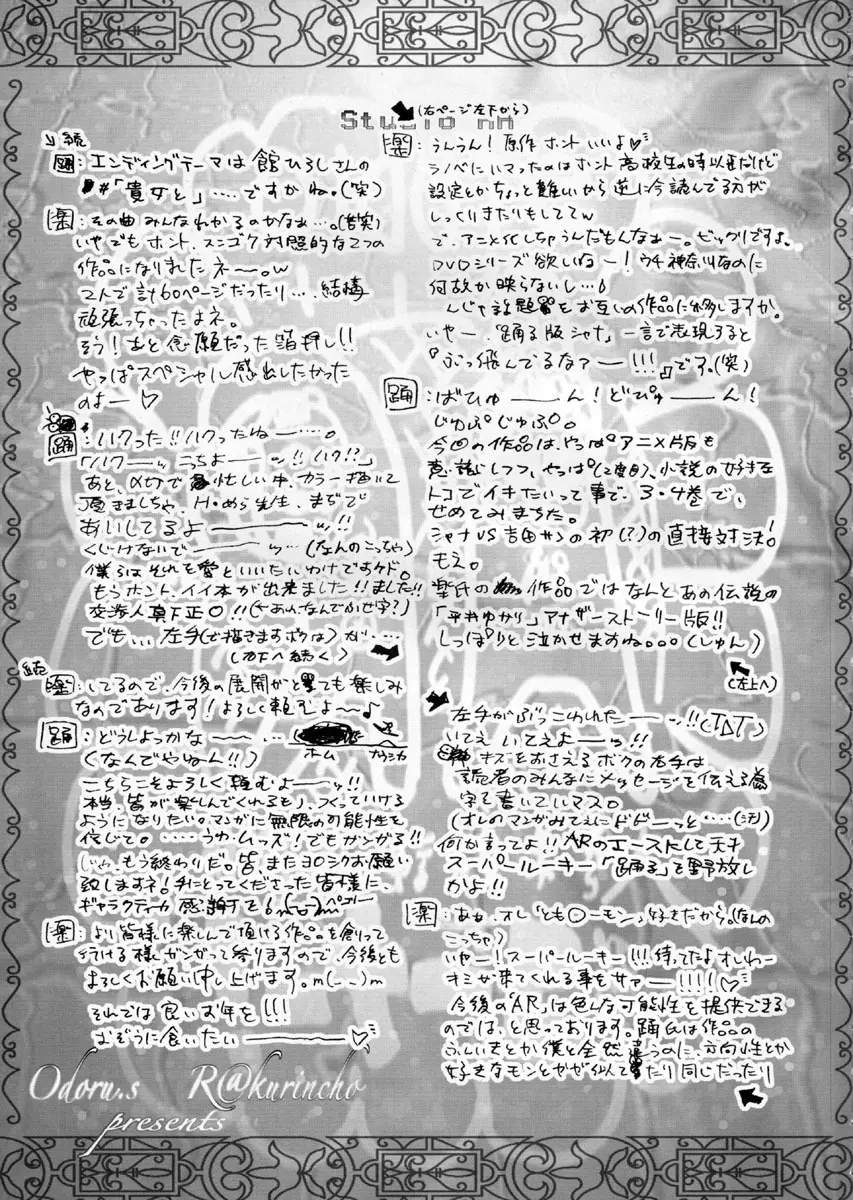 Studio nn
(右ページ左下から)
楽：うんうん！原作ホントいいよ♡
ラノベにハマったのはホント高校生の時以来だけど
設定とかちょっと難しいから逆に今読んでる方が
しっくりきたりもしててw
で、アニメ化しちゃうんだもんなぁー。ビックリですよ。
DVDシリーズ欲しいねー！ウチ神奈川なのに
何故か映らないし…！
んじゃ話題をお互いの作品に移しますか。
いやー、「踊る版シャナ」一言で表現すると
『ぶっ飛んでるなァー!!!』です。(笑)
踊：ばひゅーん！どぴゅーん！
じゅぷじゅぷ。
今回の作品は、やっぱアニメ版も
意識しつつ、やっぱ(2度目)、小説の好きな
トコでイキたいって事で、3・4巻で、
せめてみまちた。
シャナVS吉田サンの初(?)の直接対決！
もえ。
楽氏の作品ではなんとあの伝説の
「平井ゆかり」アナザーストーリー版!!
しっぽりと泣かせますね。。。(しゅん)
(左上へ)
続
踊：エンディングテーマは舘ひろしさんの
#「貴女と」……ですかね。(笑)
楽：その曲みんなわかるのかなぁ…。(苦笑)
いやでもホント、スンゴク対照的な2つの
作品になりましたネー。w
2人で計60ページだったり…、結構
頑張っちゃったよネ。
そう！あと念願だった箔押し!!
やっぱスペシャル感出したかった
のよー♡
踊：ハクった!!ハクったねー…。
「ハクーッ こっちよーッ!! ハク!?」
あと、〆切で忙しい中、カラー描いて
頂きましちゃ、H・めら先生、まぢで
あいしてるよーーーッ!!
くじけないで———ッ…(なんのこっちゃ)
僕らはそれを愛といいたいわけですケド。
もうホント、イイ本が出来ました!!ました!!
交渉人真下正〇!!(←あれなんでふせ字?)
でも…、左手(で描きますボクは)が…
(右下へ続く)
左手がぶっこわれたーーッ!!(T△T)
いてえ いてえよーーッ!!
キズをおさえるボクの右手は
読者のみんなにメッセージを伝える為
字を書いていマス。
(オレのマンガみてぇにドドーーっと……(汗)
何か言ってよ!! ARのエースとして天才
スーパールーキー「踊る」を野放し
かよ!!
楽：あぁ、オレ「とも〇ーモン」好きだから。(なんの
こっちゃ)
いやー！スーパールーキー!!!待ってたよオレぁー
キミが来てくれる事をサァー!!!!(♡
今後の「AR」は色んな可能性を提供できる
のでは、と思っております。踊氏は作品の
ふんいきとか僕と全然違うのに、方向性とか
好きなモンとかが似てたり同じだったり
続
楽：してるので、今後の展開がとても楽しみ
なのであります！よろしく頼むよ〜♪
踊：どうしよっかなーーー…。
ホーム
ナウシカ
(なんでやねん!!)
こちらこそよろしく頼むよーーッ!!
本当、皆が楽しんでくれるもノ、つくっていける
ようになりたい。マンガに無限の可能性を
信じて。……うわ、ムッズ！でもガンガる!!
じゃ、もう終わりだ。皆、またヨロシクお願い
致しますネ！手にとってくださった皆様に、
ギャラクティカ感謝をm(_ _)mペコリー
楽：より皆様に楽しんで頂ける作品を創って
行ける様ガンガって参りますので、今後とも
よろしくお願い申し上げます。m(_ _)m
それでは良いお年を!!!
おぞうに食いたい———♡
Odoru.s R@kurincho
presents